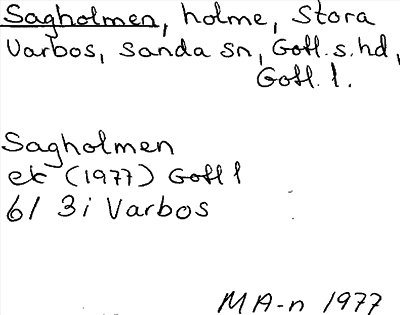 Sagholmen, holme, Stora
Varbos, Sanda sn, Gotl. s. hd,
Gotl. l.
Sagholmen
ek (1977) Gotl l
6I 3i Varbos
MA-n 1977